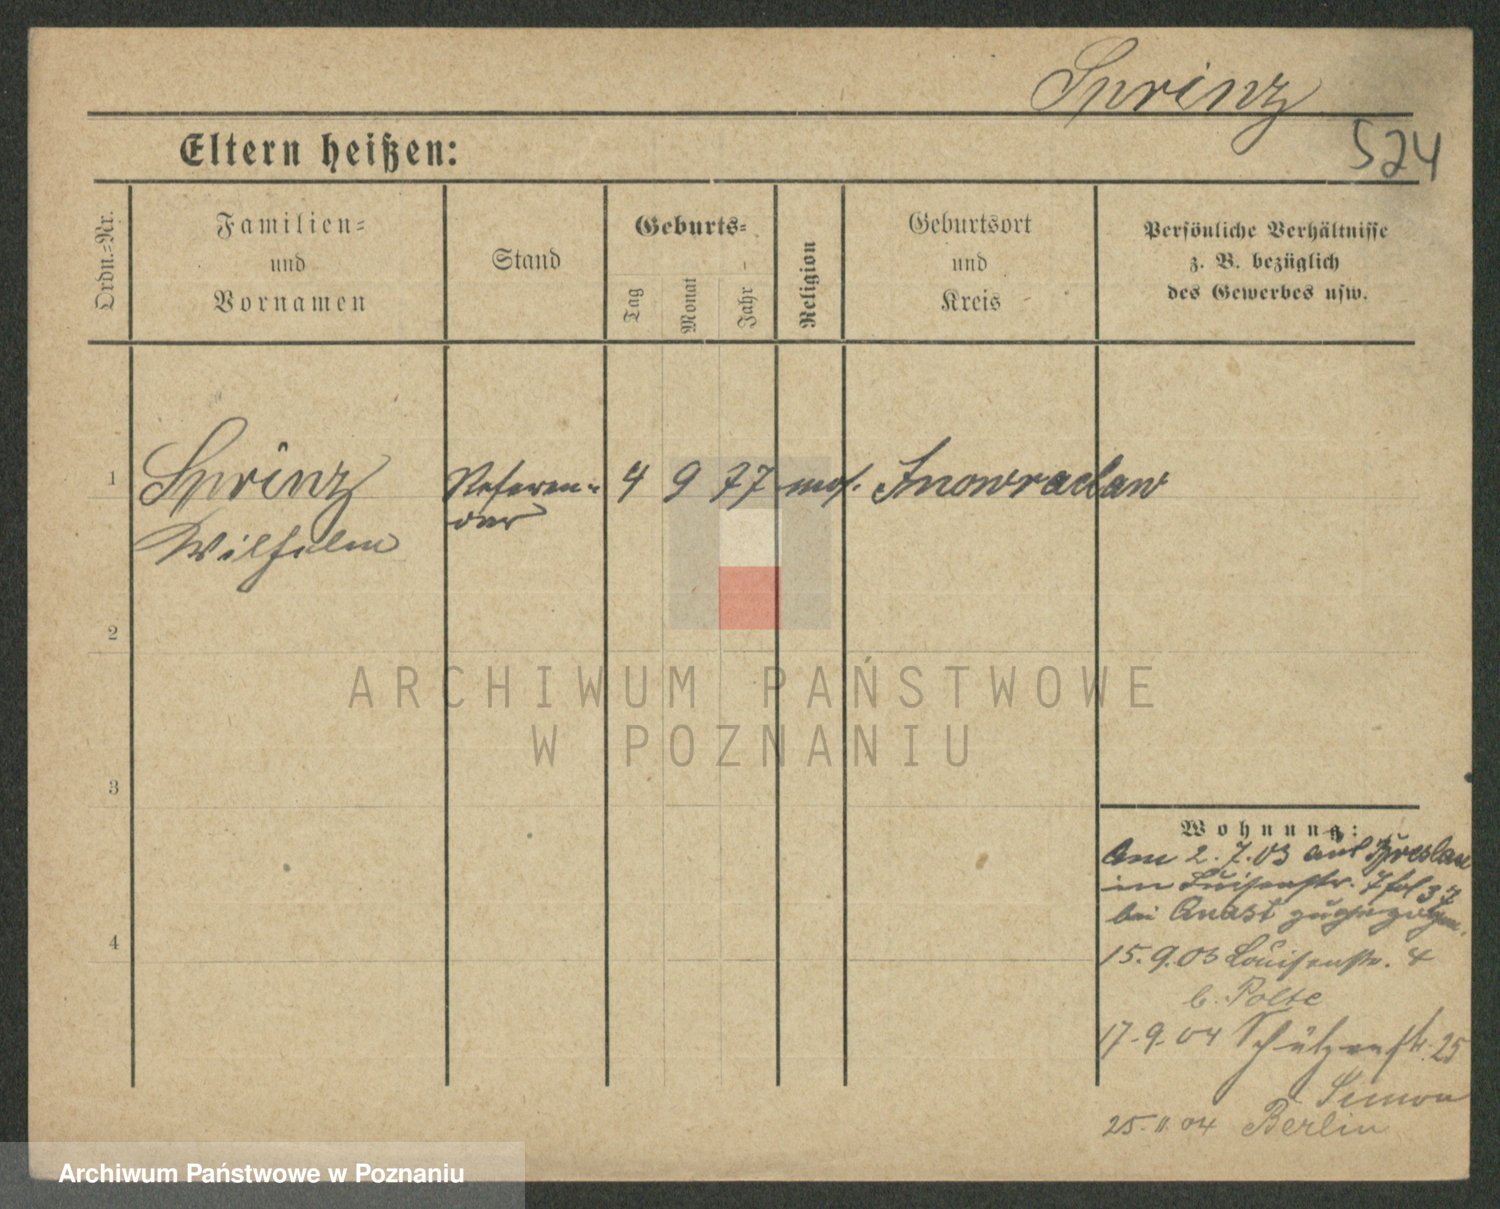 Sprinz
524
Eltern heißen:
Ordn.-Nr.
Familien-
und
Vornamen
Stand
Geburts-
Tag
Monat
Jahr
Religion
Geburtsort
und
Kreis
Persönliche Verhältnisse
z. B. bezüglich
des Gewerbes usw.
1 Sprinz Referen- 4 9 77 mos. Inowraclaw
Wilhelm dar
2
3
4
Wohnung:
Am 2.7.03 aus Breslau
in Luisenstr. 7
bei Anast zugezogen.
15.9.03 Louisenstr. 4
b. Polte
17.9.04 Schützenstr. 25
b. Simon
25.11.04 Berlin
ARCHIWUM PAŃSTWOWE
W POZNANIU
Archiwum Państwowe w Poznaniu